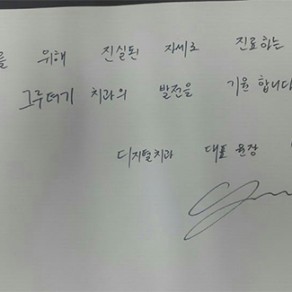 를 위해 진실된 자세로 진료하는
그루터기 치과의 발전을 기원 합니다
디지털치과 대표 원장